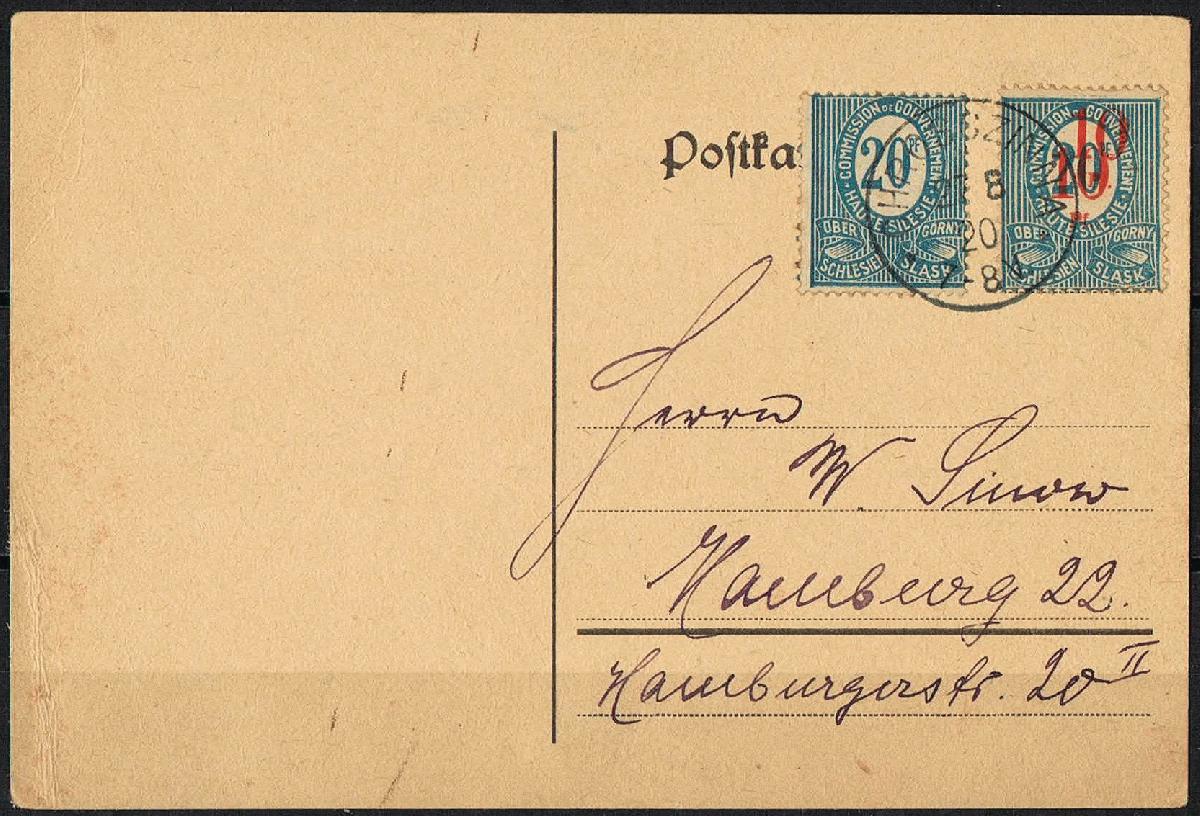 COMMISSION DE GOUVERNEMENT
HAUTE SILESIE
20
OBER GORNY
SCHLESIEN SLASK
COMMISSION DE GOUVERNEMENT
HAUTE SILESIE
20
10
10
OBER GORNY
SCHLESIEN SLASK
8
20
7-8V
Herrn
W. Sinow
Hamburg 22.
Hamburgerstr. 20 II